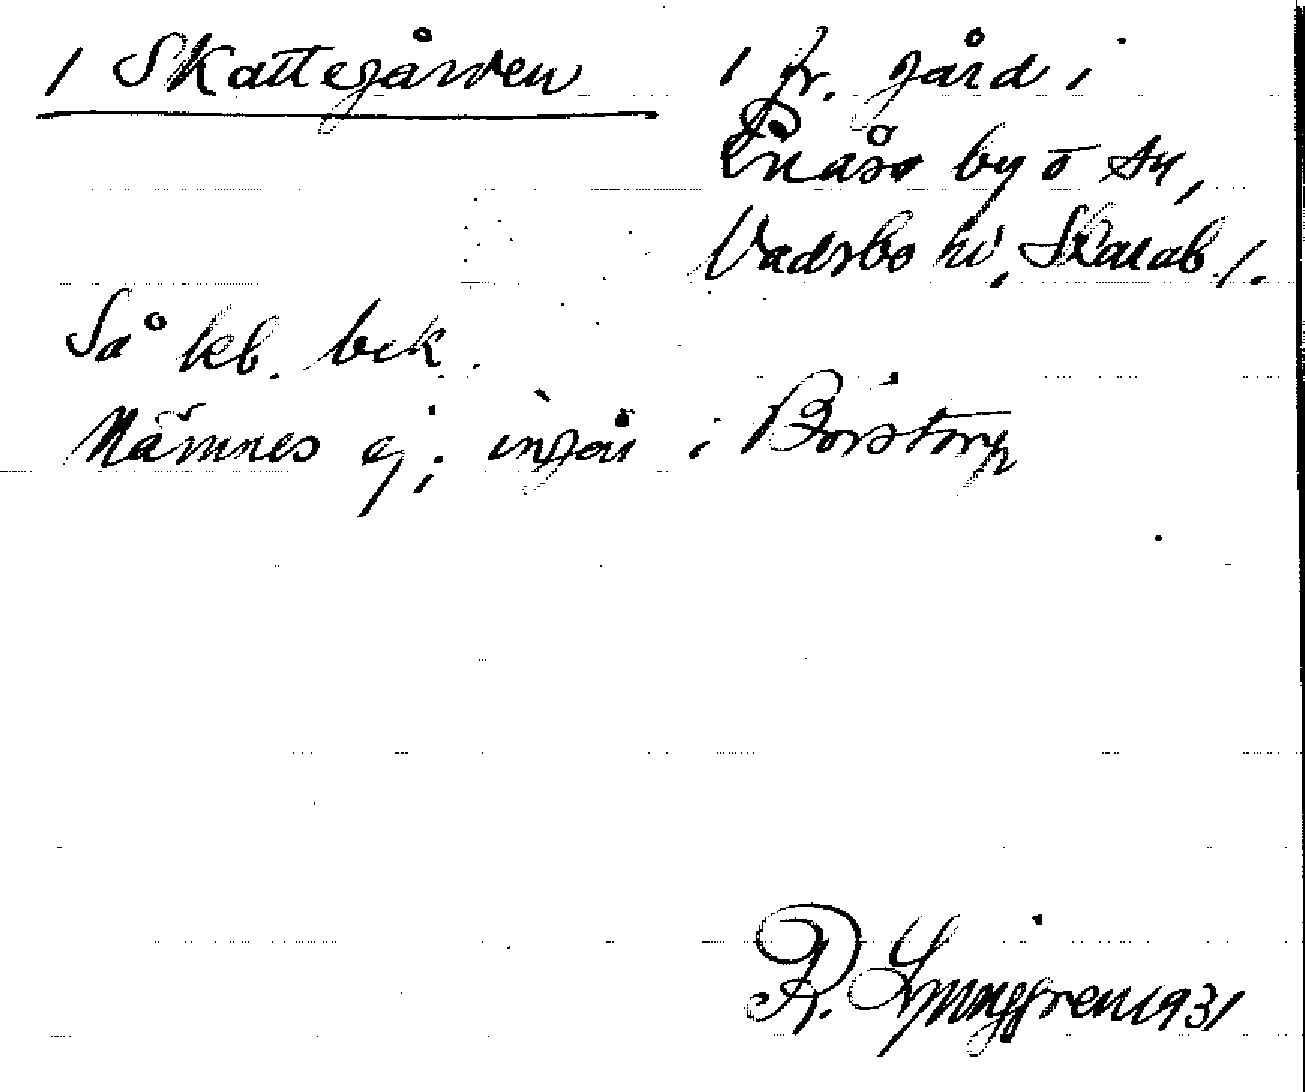 1 Skattegården
1 fr. gård i
Enåsa by o sn,
Vadsbo hd, Skarab. l.
Så kb. bek.
Nämnes ej; ingår i Börstorp
R. Ljunggren 1931